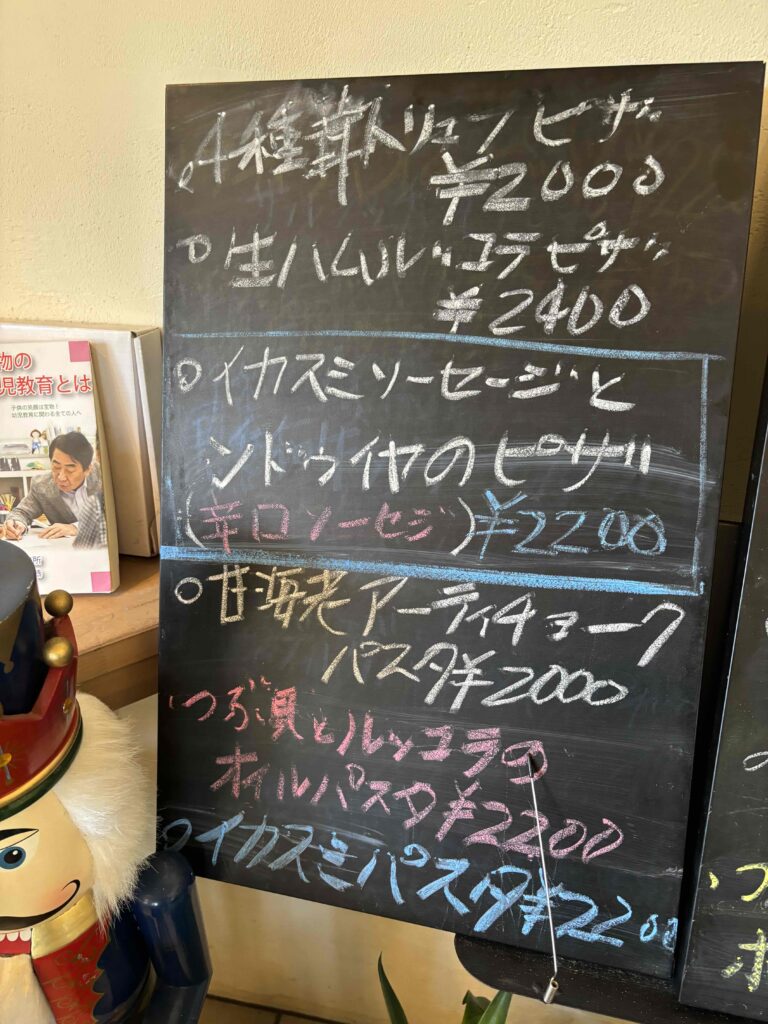 4種茸トリュフピザ
¥2000
○生ハムルッコラピザ
¥2400
○イカスミソーセージと
ンドゥイヤのピザ
(辛口ソーセジ)¥2200
○甘海老アーティチョーク
パスタ¥2000
つぶ貝とルッコラの
オイルパスタ¥2200
○イカスミパスタ¥2200
物の
児教育とは
子供の笑顔は宝物!
幼児教育に関わる全ての人へ
所
つ
オ